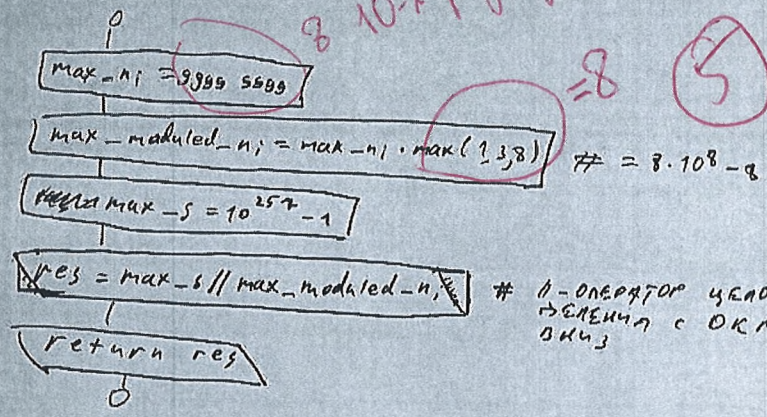 8 10
max_ni = 9999 9999
=8
5
max_moduled_ni = max_ni · max(1,3,8) # = 8·10⁸-8
max_s = 10²⁵⁷-1
res = max_s // max_moduled_ni # //-ОПЕРАТОР ЦЕЛО
ДЕЛЕНИЯ С ОКР
ВНИЗ
return res